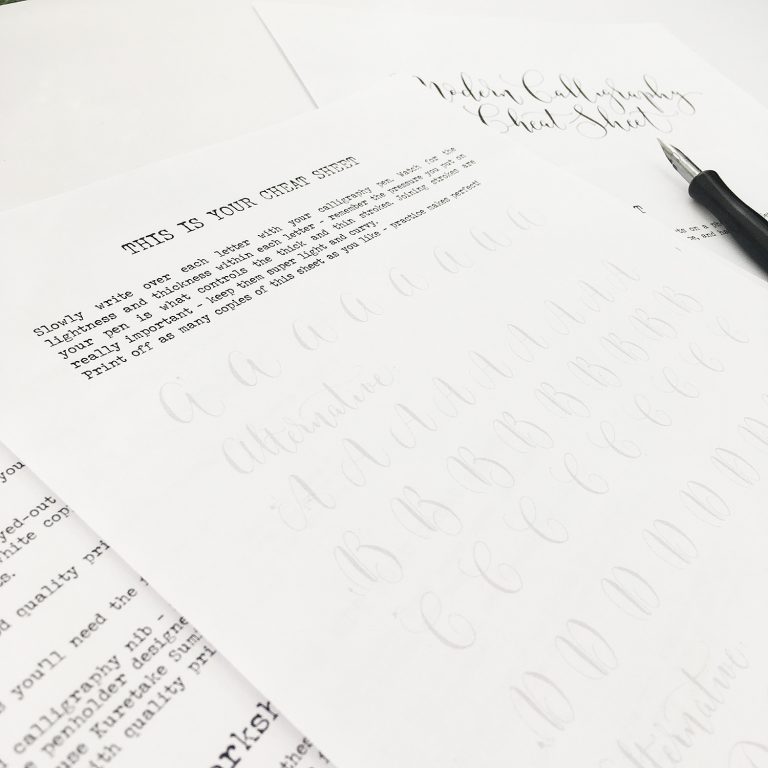 Modern Calligraphy
Cheat Sheet
THIS IS YOUR CHEAT SHEET
Slowly write over each letter with your calligraphy pen. Watch for the
lightness and thickness within each letter - remember the pressure you put on
your pen is what controls the thick and thin strokes. Joining strokes are
really important - keep them super light and curvy.
Print off as many copies of this sheet as you like - practice makes perfect!
a a a a a a a a
Alternative:
A A A A A A A A
B B B B B B B B
C C C C C C C C
D D D D D D D
Alternative:
T
on a
and
you
yed-out
white
ts.
quality
you'll need the
calligraphy nib -
penholder
use Kuretake
with quality